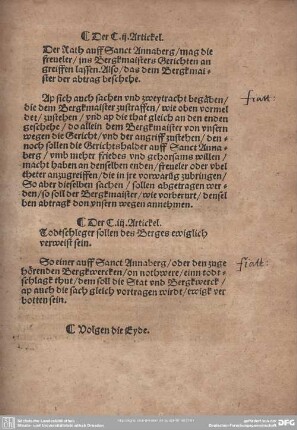 ¶ Der C.ij. Artickel.
Der Rath auff Sanct Annaberg/ mag die
freueler/ jns Bergkmaisters Gerichten an
greiffen lassen. Also/ das dem Bergkmai-
ster der abtrag beschehe.
Ap sich auch sachen vnd zwytracht begäben/
die dem Bergkmaister zustraffen/ wie oben vormel
det/ zustehen/ vnd ap die that gleich an den enden
geschehe/ do allein dem Bergkmaister von vnsern
wegen die Gericht/ vnd der angriff zustehen/ den-
noch sollen die Gerichtshalder auff Sanct Anna-
berg/ vmb mehrer friedes vnd gehorsams willen/
macht haben an denselben enden/ freueler oder vbel
theter anzugreiffen/ die in jre vorwarung zubringen/
So aber dieselben sachen/ sollen abgetragen wer-
den/ so soll der Bergkmaister/ wie vorberurt/ densel
ben abtragk von vnsern wegen annehmen.
fiatt:
¶ Der C.iij. Artickel.
Todtschleger sollen des Berges ewiglich
verweist sein.
So einer auff Sanct Annaberg/ oder den zuge
hörenden Bergkwercken/ on nothwere/ einn todt-
schlagk thut/ dem soll die Stat vnd Bergkwerck/
ap auch die sach gleich vortragen wirdt/ ewigk ver
botten sein.
fiatt:
¶ Volgen die Eyde.